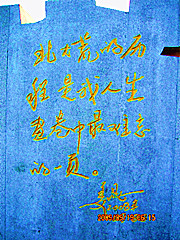 北大荒的历
程是我人生
画卷中最难忘
的一页。